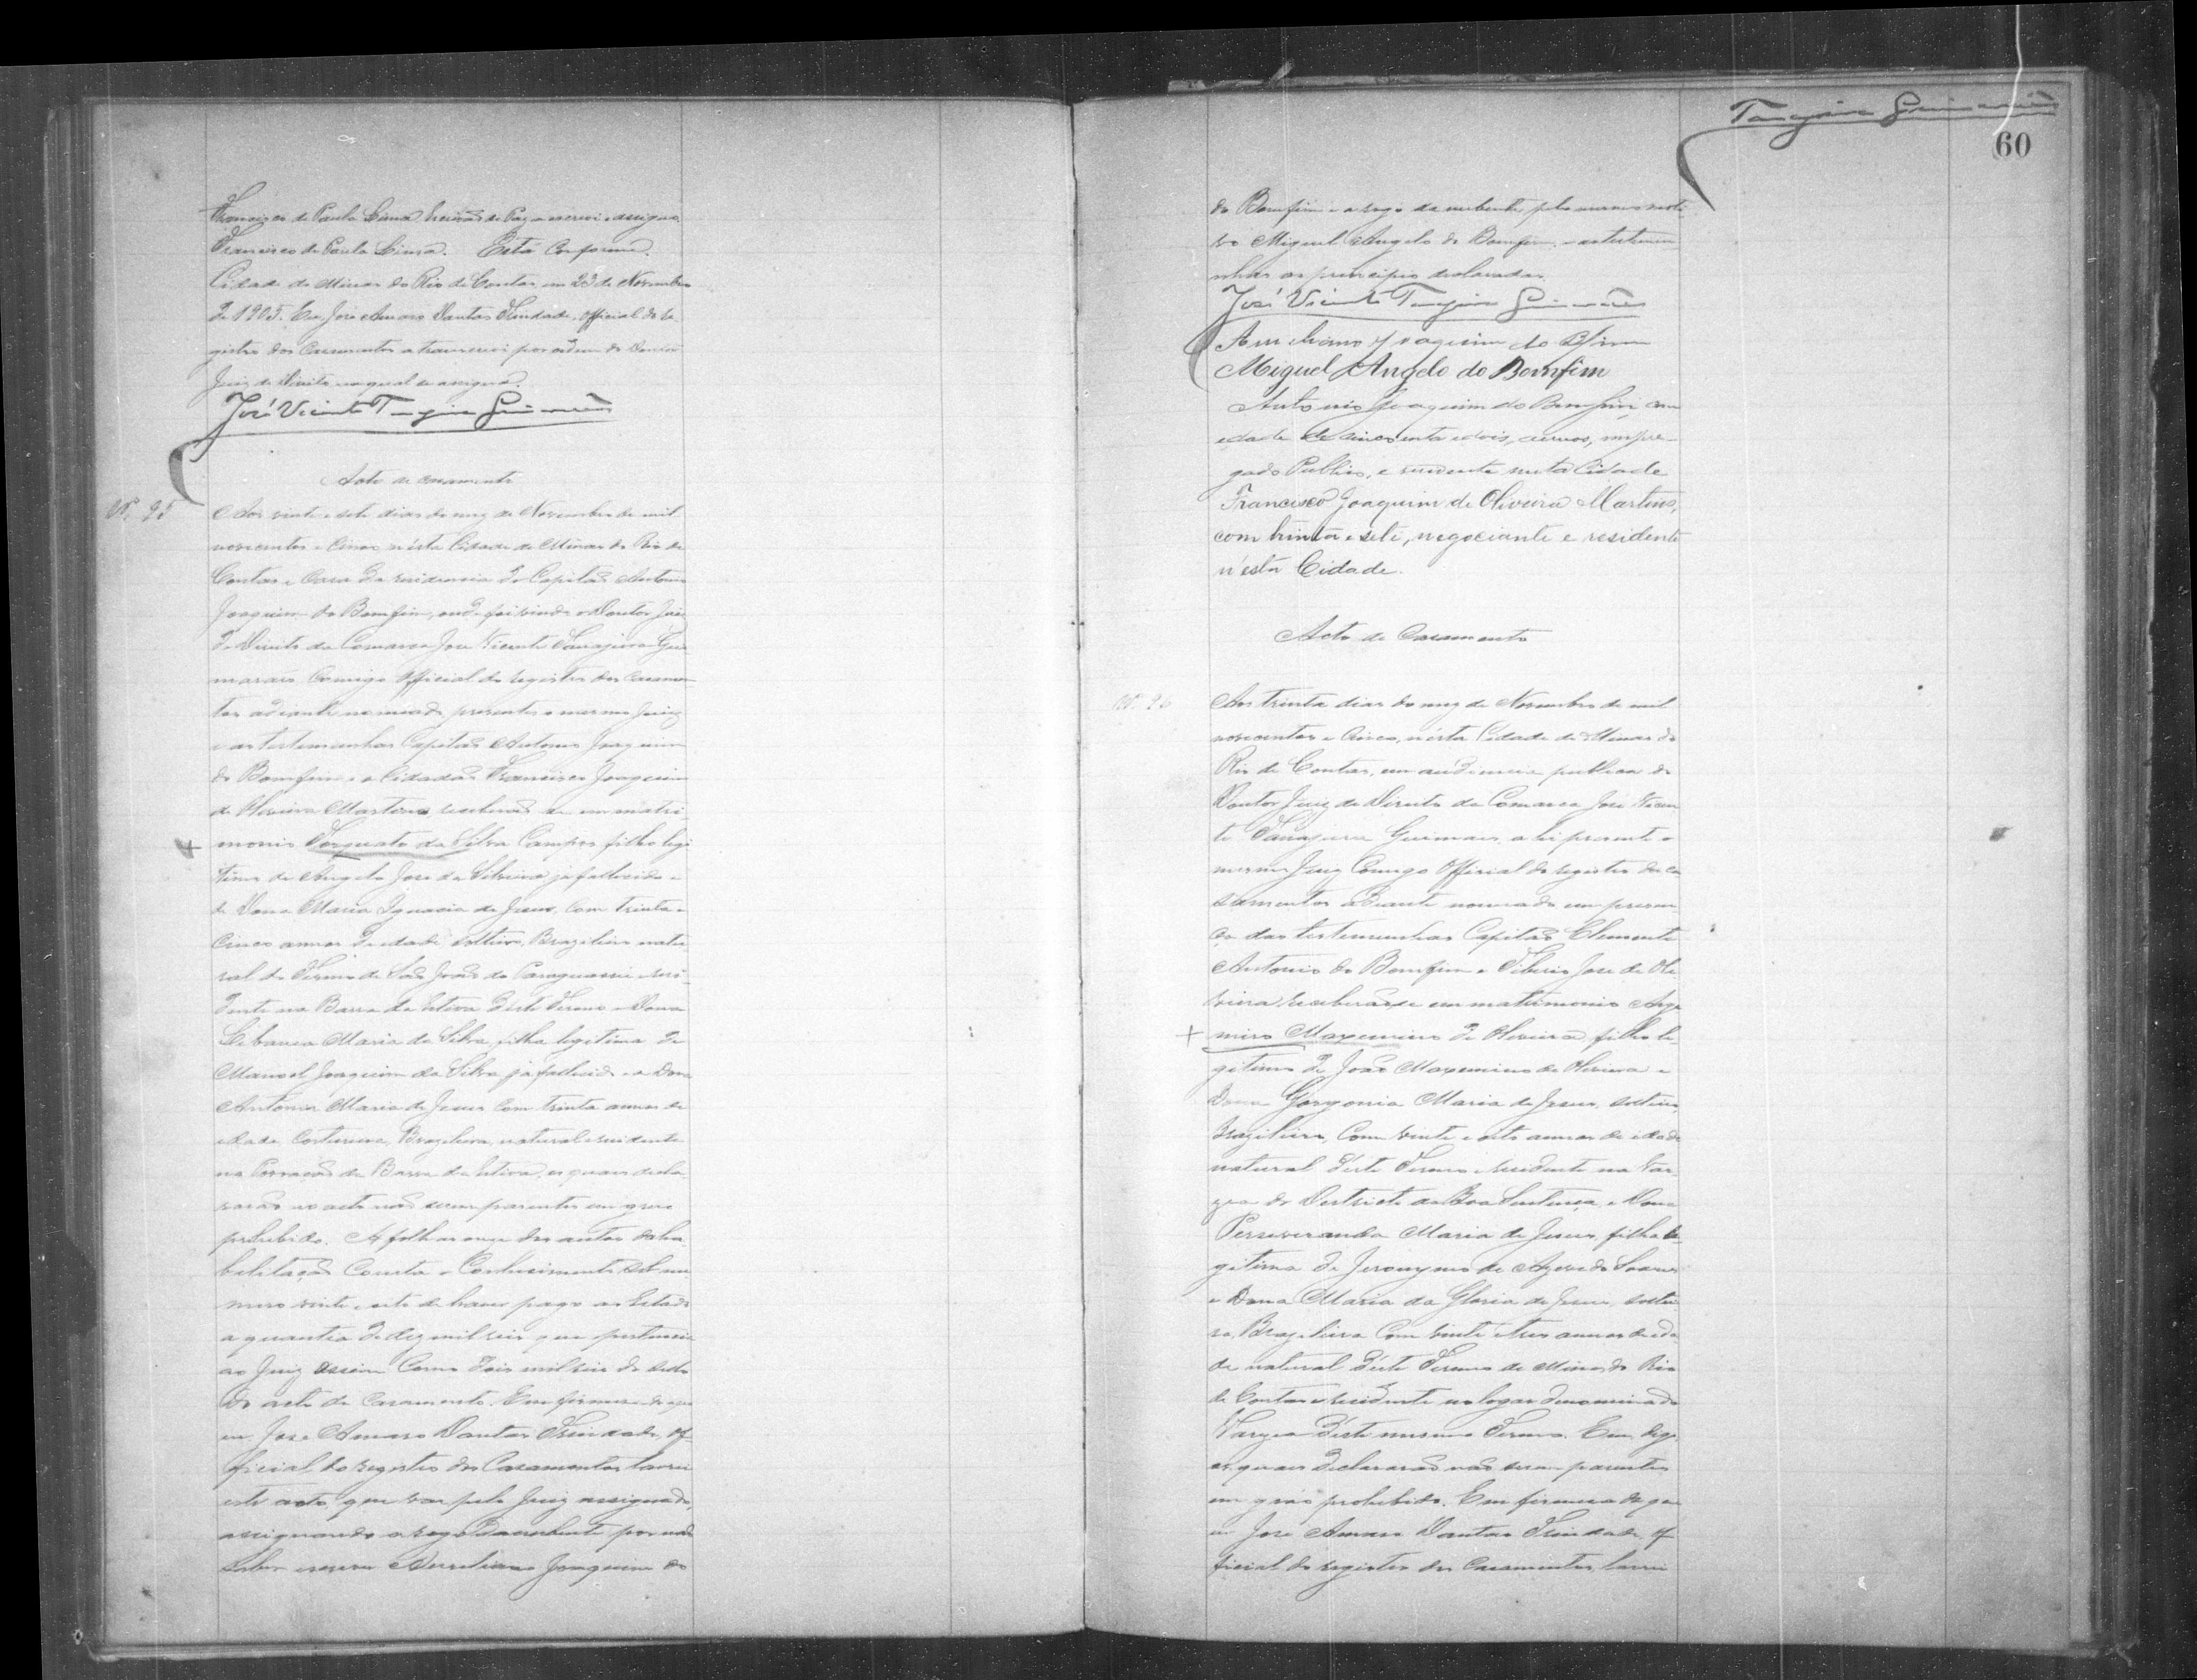 Francisco de Paula Lima Escrivão de Paz a escrevi e assigno
Francisco de Paula Lima. Está Conforme.
Cidade de Minas do Rio de Contas, em 23 de Novembro
de 1905. Eu José Amaro Dantas Trindade, Official do re
gistro dos Casamentos a transcrevi por ordem do Doutor
Juiz de Direito o qual se assigna.
José Vicente Tanajura Guimarães
Acto de casamento
Nº 95
Aos vinte e sete dias do mez de Novembro de mil
novecentos e Cinco n'ésta Cidade de Minas do Rio de
Contas e Casa de residencia do Capitão Antonio
Joaquim do Bomfim, onde foi vindo o Doutor Juiz
de Direito da Comarca José Vicente Tanajura Gui
marães Comigo Official do registro dos Casamen
tos adiante nomeado, presentes o mesmo Juiz
e as testemunhas Capitão Antonio Joaquim
do Bomfim e o Cidadão Francisco Joaquim
de Oliveira Martins receberão se em matri
monio Torquato da Silva Campos filho legi
timo de Angelo José da Silveira já fallecido e
de Dona Maria Ignacia de Jesus, com trinta e
Cinco annos de edade solteiro, Brazileiro natu
ral do Termo de São João do Paraguassú e resi
dente na Barra da Estiva d'este Termo e Dona
Maria da Silva, filha legitima de
Manoel Joaquim da Silva já fallecido e a Dona
Antonia Maria de Jesus com trinta annos de
edade Costureira, Brazileira, natural e residente
na Povoação da Barra da Estiva, os quais decla
rarão no acto não serem parentes em grau
prohibido. A folhas onze dos autos da ha
bilitação Consta o Conhecimento sob nu
mero vinte e oito de haver pago ao Estado
a quantia de dez mil reis que pertencia
ao Juiz assim Como dois mil reis do sello
do acto de Casamento. Em firmeza do que
eu, José Amaro Dantas Trindade, of
ficial do registro dos Casamentos lavrei
este acto, que vae pelo Juiz assignado,
assignando a rogo do nubente por não
saber escrever Aureliano Joaquim do
Tanajura Guimarães
60
do Bomfim e a rogo da nubente, pelo mesmo moti
vo Miguel Angelo do Bomfim, e as testemu
nhas ao principio declaradas.
José Vicente Tanajura Guimarães
Aureliano Joaquim do Bomfim
Miguel Angelo do Bomfim
Antonio Joaquim do Bomfim, com
edade de cincoenta e dois, annos, empre
gado Publico, e residente nesta Cidade
Francisco Joaquim de Oliveira Martins,
com trinta e sete, negociante e residente
n'ésta Cidade.
Acto de Casamento
Nº 96
Aos trinta dias do mez de Novembro de mil
novecentos e Cinco, n'ésta Cidade de Minas do
Rio de Contas, em audiencia publica do
Doutor Juiz de Direito da Comarca José Vicen
te Tanajura Guimarães, ahi presente o
mesmo Juiz Comigo Official do registro dos ca
samentos adiante nomeado em presen
ça das testemunhas Capitão Clemente
Antonio do Bomfim e Tiberio José de Oli
veira receberão se em matrimonio Arge
miro Maximino de Oliveira, filho le
gitimo de João Maximino de Oliveira e
Dona Gorgonia Maria de Jesus, solteiro,
Brazileiro, Com vinte e oito annos de idade
natural d'este Termo e residente na Var
gea do Districto da Boa Sentença, e Dona
Perseveranda Maria de Jesus, filha le
gitima de Jeronymo de Azevedo Soares
e Dona Maria da Gloria de Jesus, soltei
ra, Brazileira Com vinte e tres annos de eda
de natural d'este Termo de Minas do Rio
de Contas e residente no logar denominado
Vargea d'este mesmo Termo. Em digo
os quais declararão não serem parentes
em gráo prohibido. Em firmeza do que
eu José Amaro Dantas Trindade, of
ficial do registro dos Casamentos, lavrei